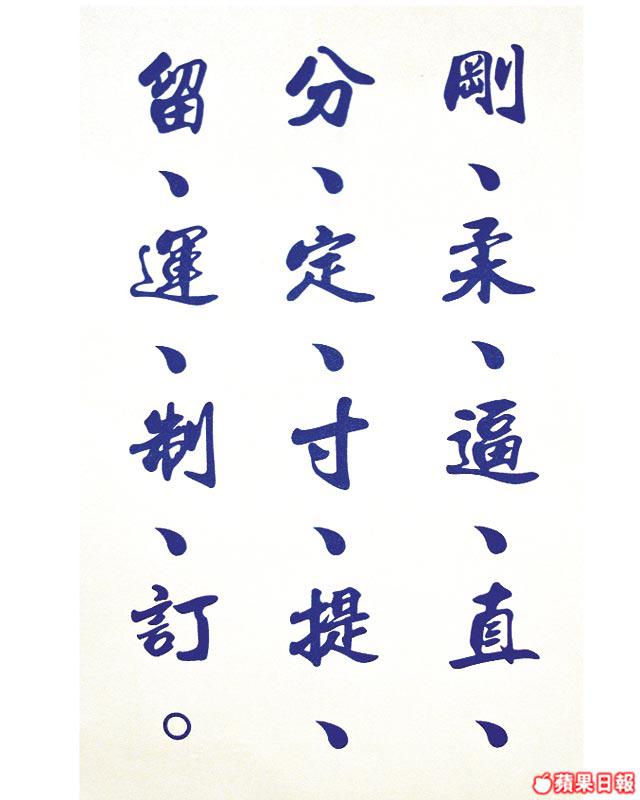 剛、柔、逼、直、
分、定、寸、提、
留、運、制、訂。
蘋果日報